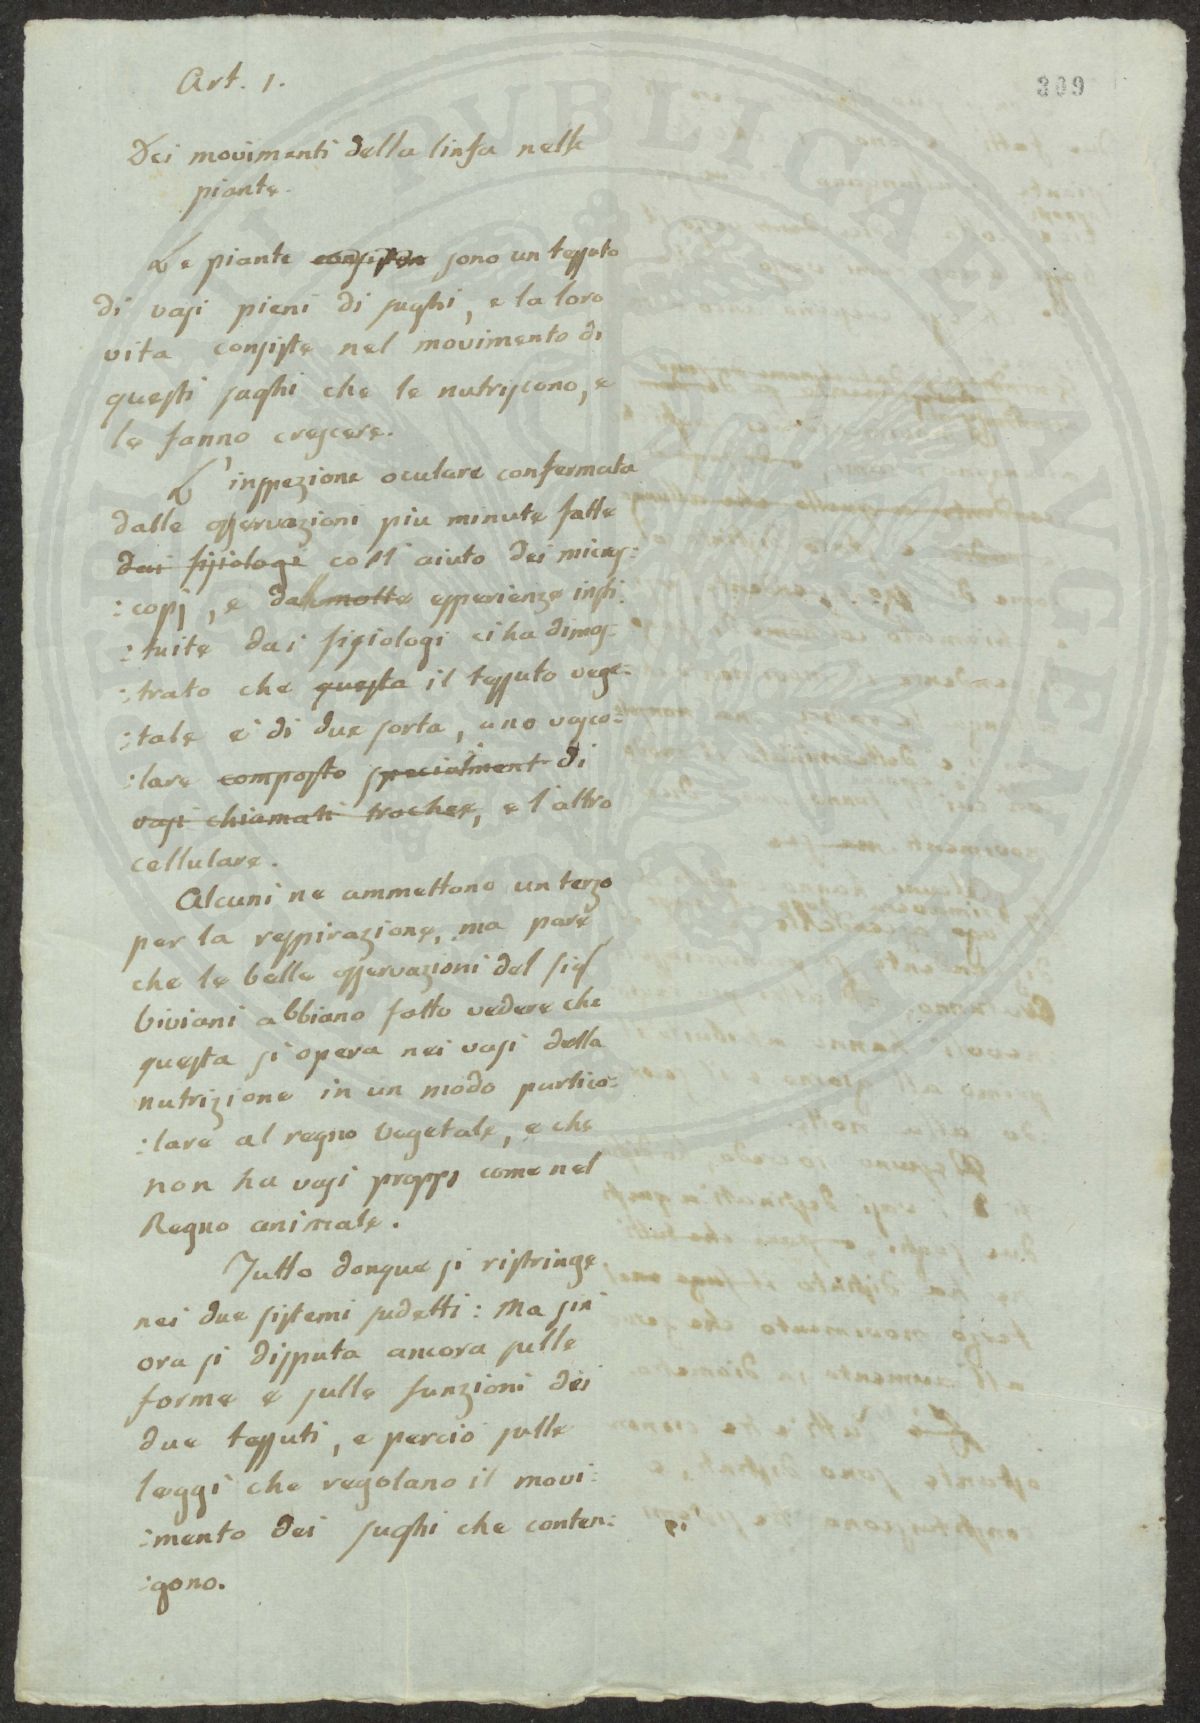 Art. 1.
309
Dei movimenti della linfa nelle
piante.
Le piante consiston sono un tessuto
di vasi pieni di sughi, e la loro
vita consiste nel movimento di
questi sughi che le nutriscono, e
le fanno crescere.
L'inspezione oculare confermata
dalle osservazioni piu minute fatte
dai fisiologi coll'aiuto dei micros:
:copj, e dalle molte esperienze insti:
:tuite dai fisiologi ci ha dimos:
:trato che questa il tessuto vege:
:tale è di due sorta, uno vasco:
:lare composto specialment di
vasi chiamati trachee, e l'altro
cellulare.
Alcuni ne ammettono un terzo
per la respirazione, ma pare
che le belle osservazioni del sig
Viviani abbiano fatto vedere che
questa si opera nei vasi della
nutrizione in un modo partico:
:lare al regno Vegetale, e che
non ha vasi proprj come nel
Regno animale.
Tutto donque si ristringe
nei due sistemi sudetti: Ma sin
ora si disputa ancora sulle
forme e sulle funzioni dei
due tessuti, e perciò sulle
leggi che regolano il movi:
:mento dei sughi che conten:
:gono.